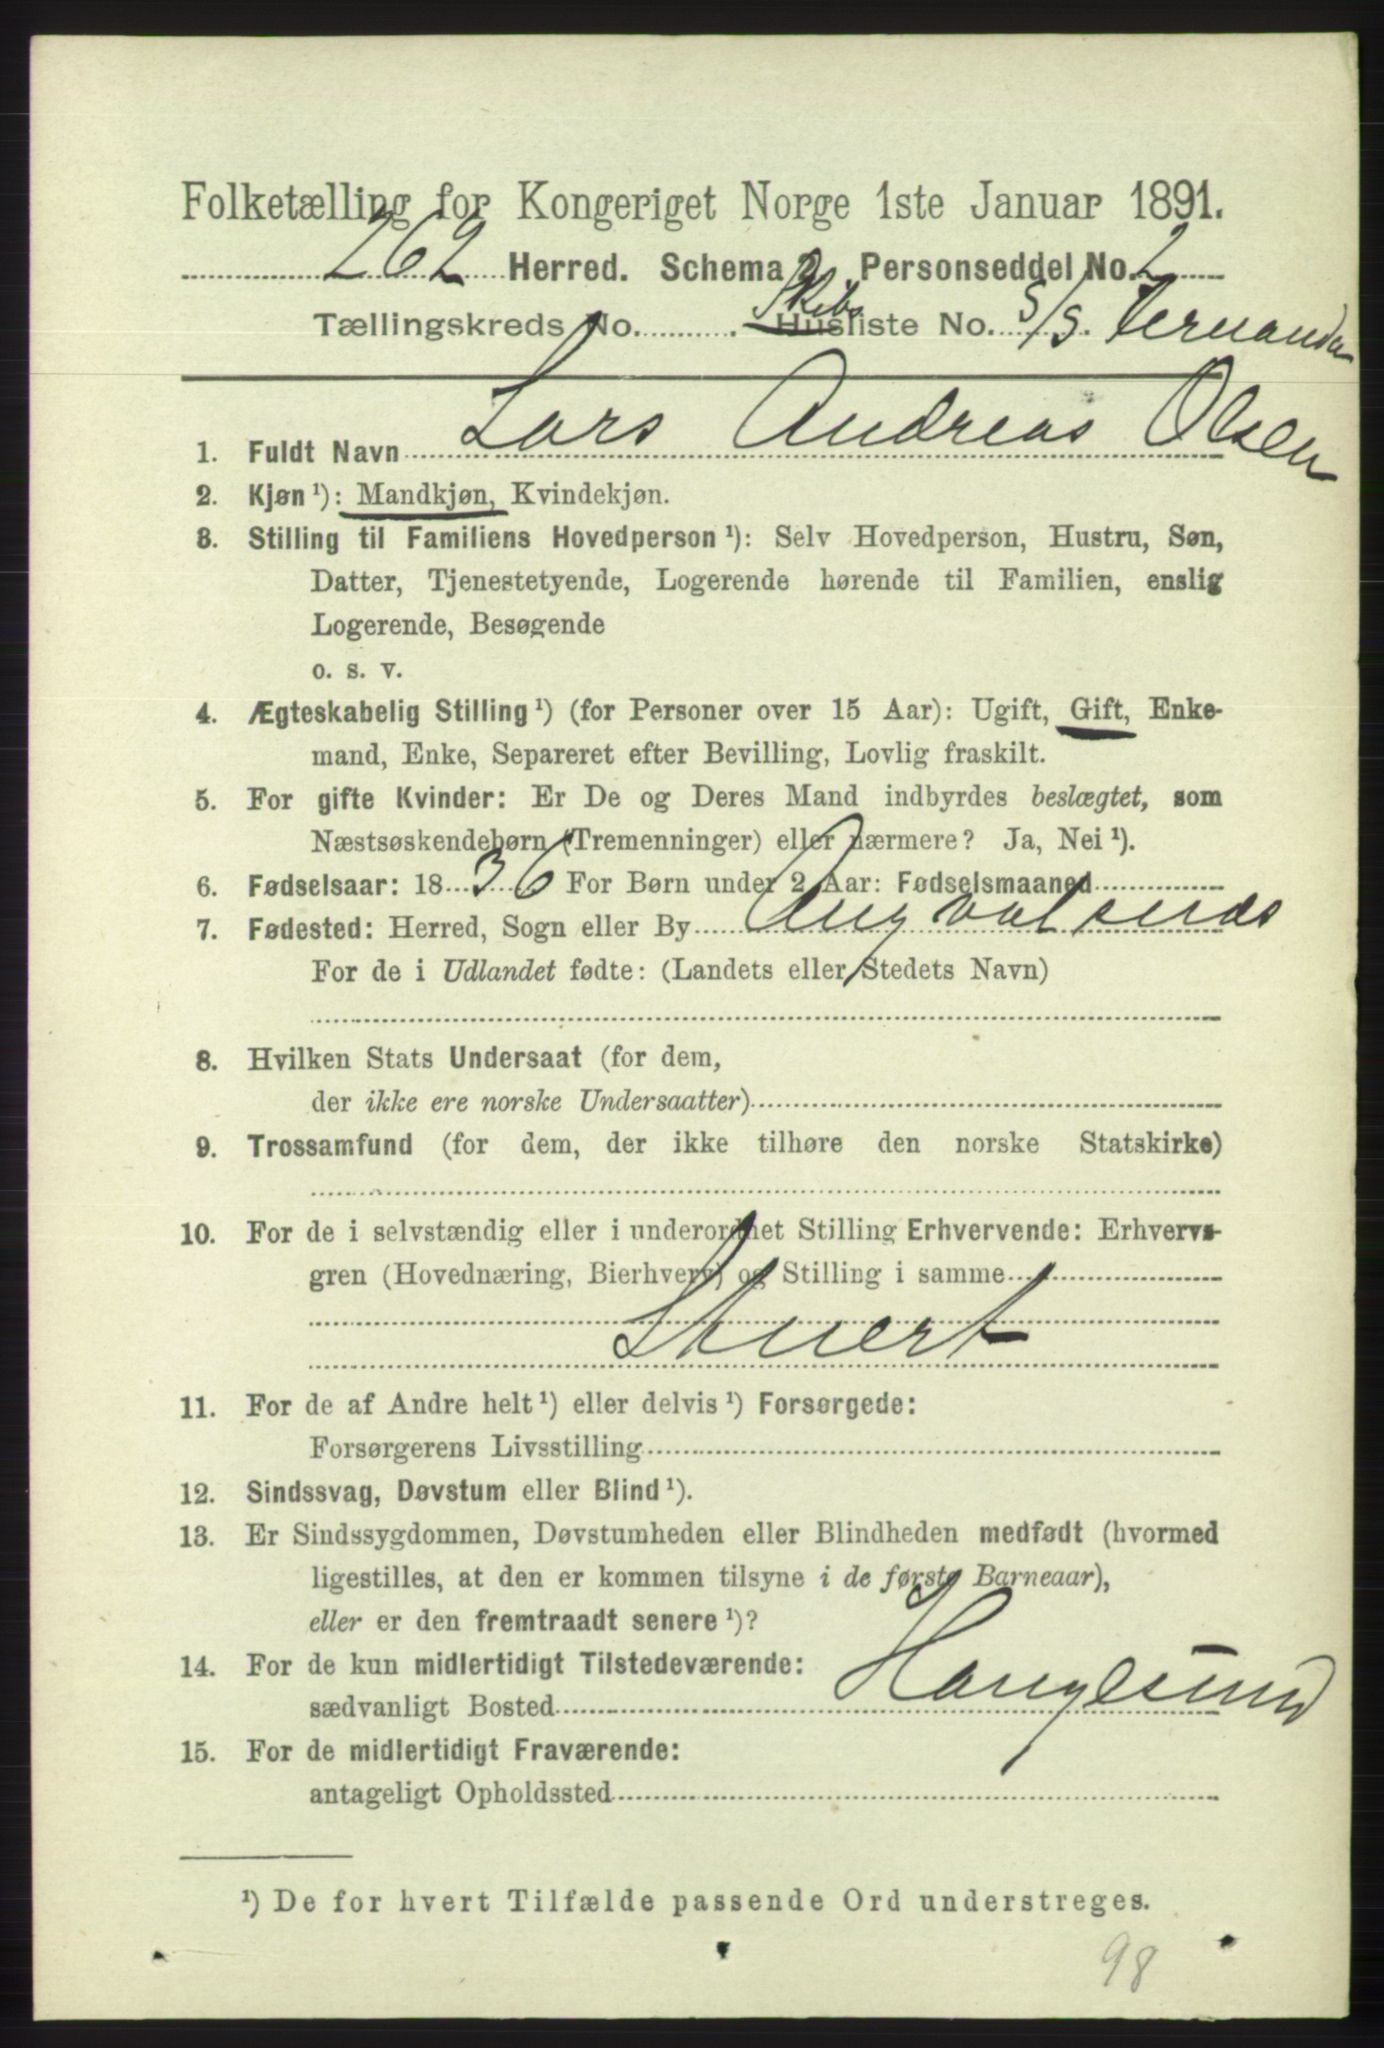 Folketælling for Kongeriget Norge 1ste Januar 1891.
262 Herred. Schema 2. Personseddel No. 2
Tællingskreds No. . Skibs Husliste No. S/S.
1. Fuldt Navn Lars Andreas Olsen
2. Kjøn ¹): Mandkjøn, Kvindekjøn.
3. Stilling til Familiens Hovedperson ¹): Selv Hovedperson, Hustru, Søn,
Datter, Tjenestetyende, Logerende hørende til Familien, enslig
Logerende, Besøgende
o. s. v.
4. Ægteskabelig Stilling ¹) (for Personer over 15 Aar): Ugift, Gift, Enke-
mand, Enke, Separeret efter Bevilling, Lovlig fraskilt.
5. For gifte Kvinder: Er De og Deres Mand indbyrdes beslægtet, som
Næstsøskendebørn (Tremenninger) eller nærmere? Ja, Nei ¹).
6. Fødselsaar: 1836 For Børn under 2 Aar: Fødselsmaaned
7. Fødested: Herred, Sogn eller By
For de i Udlandet fødte: (Landets eller Stedets Navn)
8. Hvilken Stats Undersaat (for dem,
der ikke ere norske Undersaatter)
9. Trossamfund (for dem, der ikke tilhøre den norske Statskirke)
10. For de i selvstændig eller i underordnet Stilling Erhvervende: Erhvervs-
gren (Hovednæring, Bierhverv) og Stilling i samme
Stuert
11. For de af Andre helt ¹) eller delvis ¹) Forsørgede:
Forsørgerens Livsstilling
12. Sindssvag, Døvstum eller Blind ¹).
13. Er Sindssygdommen, Døvstumheden eller Blindheden medfødt (hvormed
ligestilles, at den er kommen tilsyne i de første Barneaar),
eller er den fremtraadt senere ¹)?
14. For de kun midlertidigt Tilstedeværende:
sædvanligt Bosted Haugesund
15. For de midlertidigt Fraværende:
antageligt Opholdssted
¹) De for hvert Tilfælde passende Ord understreges.
98